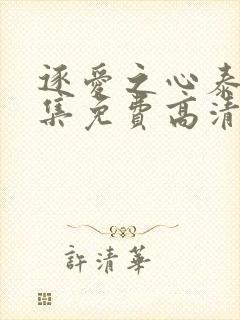 逐愛之心泰
集免費高清
許清華